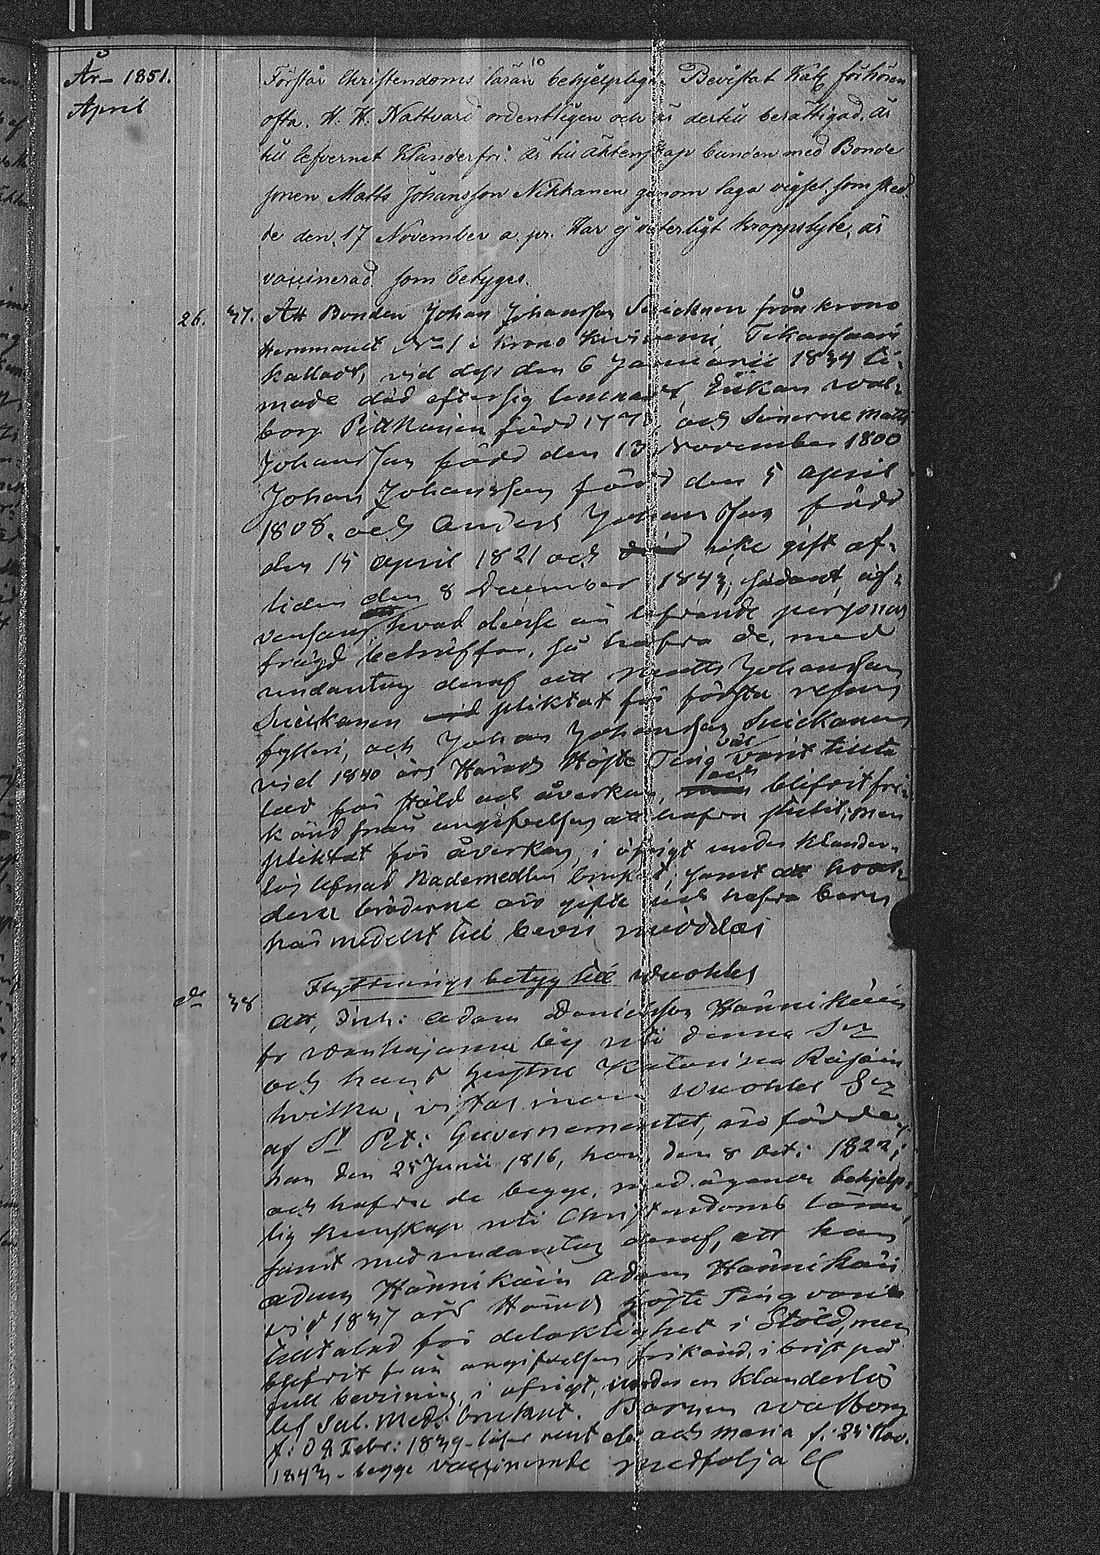 År 1851.
April
Förstår Christendoms läran behjelpligt. Bevistat Kat förhören
ofta. H. H. Nattvard ordentligen och är dertill berättigad. är
till lefvernet Klanderfri. är till äktenskap bunden med Bonde
sonen Matts Johansson Nikkanen genom laga vigsel som sked
de den 17 November a. pr. Har ej veterligt kroppslyte, är
vaccinerad som betyges.
26. 37. Att Bonden Johan Johansson från krono
Hemmanet No 1 i krono
kalladt, vid dess den 6 Januarii 1834 ti-
made död efter sig lemnat Enkan Wal-
borg född 177 och Sönerne Matts
Johansson född den 13 November 1800
Johan Johansson född den 5 april
1808. och Anders Johansson född
den 15 april 1821 och icke gift af-
liden den 8 December 1843; sådant äf-
vensom hvad desse än lefvande personers
frägd beträffar, så hafva de, med
undantag deraf att Matts Johansson
pliktat för första resans
fylleri, och Johan Johansson
vid 1840 års Härads Höste Ting väl varit tillta
lad för stöld och åverkan, blifvit fri-
känd från angifvelsen att hafva stulit, men
pliktat för åverkan, i öfrigt under klander-
lös lefnad Nademedlen brukat, samt att
dera bröderne äro gifte och hafva barn
har medelst till bevis meddelas
Flyttnings betyg till Wuoles
do 38 Att, Adam Danielsson Hännikäin
fr by uti denna Sn
och hans hustru Katarina Räsäin
hvilka, vistas inom Wuoles Sn
af St Pet: Guvernementet, äro födde,
han den 25 Junii 1816, hon den 8 oct: 1822;
och hafva de begge, med ägande behjelp-
lig kunskap uti Christendoms läran,
samt med undantag deraf, att han
Adam Hännikäin Adam Hännikäin
vid 1847 års Härads Höste Ting varit
tilltalad för delaktighet i Stöld, men
blifvit från angifvelsen frikänd, i brist på
full bevisning, i öfrigt, under en klanderlös
lef Sal. Med: brukat. Barnen Walborg
f: Febr: 1839 - läser rent och Maria f: 25 Nov.
1843 - begge vaccinerade medfölja